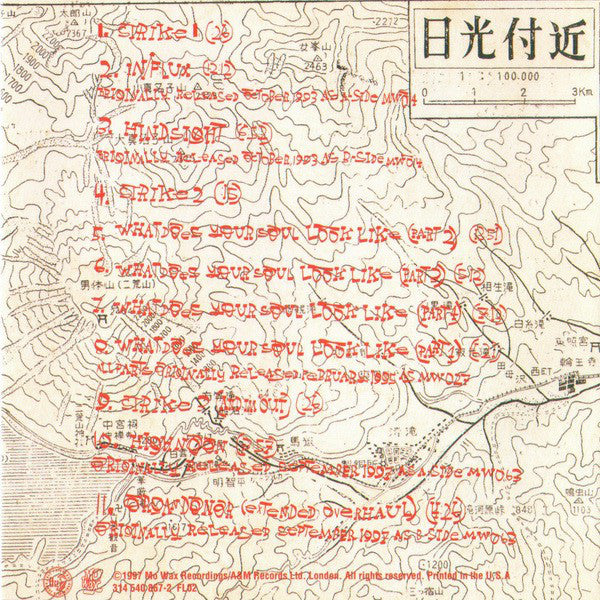 日光付近
1 : 100.000
0 1 2 3Km
太郎山
2367
2212
女峯山
2463
1. STRIKE 1 (:26)
2. IN/FLUX (12:12)
ORIGINALLY RELEASED OCTOBER 1993 AS A-SIDE MW014
3. HINDSIGHT (6:52)
ORIGINALLY RELEASED OCTOBER 1993 AS B-SIDE MW014
4. STRIKE 2 (:15)
5. WHAT DOES YOUR SOUL LOOK LIKE (PART 2)
6. WHAT DOES YOUR SOUL LOOK LIKE
男体山 (二荒山)
相生滝
7. WHAT DOES YOUR SOUL LOOK LIKE (PART 4)
白糸滝
8. WHAT DOES YOUR SOUL LOOK LIKE (PART 1)
輪王寺
ALL PARTS ORIGINALLY RELEASED FEBRUARY 1995 AS MW027
9. STRIKE 3 (AND I'M OUT) (:26)
中宮祠
10. HIGH NOON
馬返
ORIGINALLY RELEASED SEPTEMBER 1997 AS A-SIDE MW063
明智平
11. ORGAN DONOR (EXTENDED OVERHAUL) (4:26)
鳴虫山
1103
ORIGINALLY RELEASED SEPTEMBER 1997 AS B-SIDE MW063
1200
©1997 Mo Wax Recordings/A&M Records Ltd. London. All rights reserved. Printed in the U.S.A
314 540 867-2 FL02